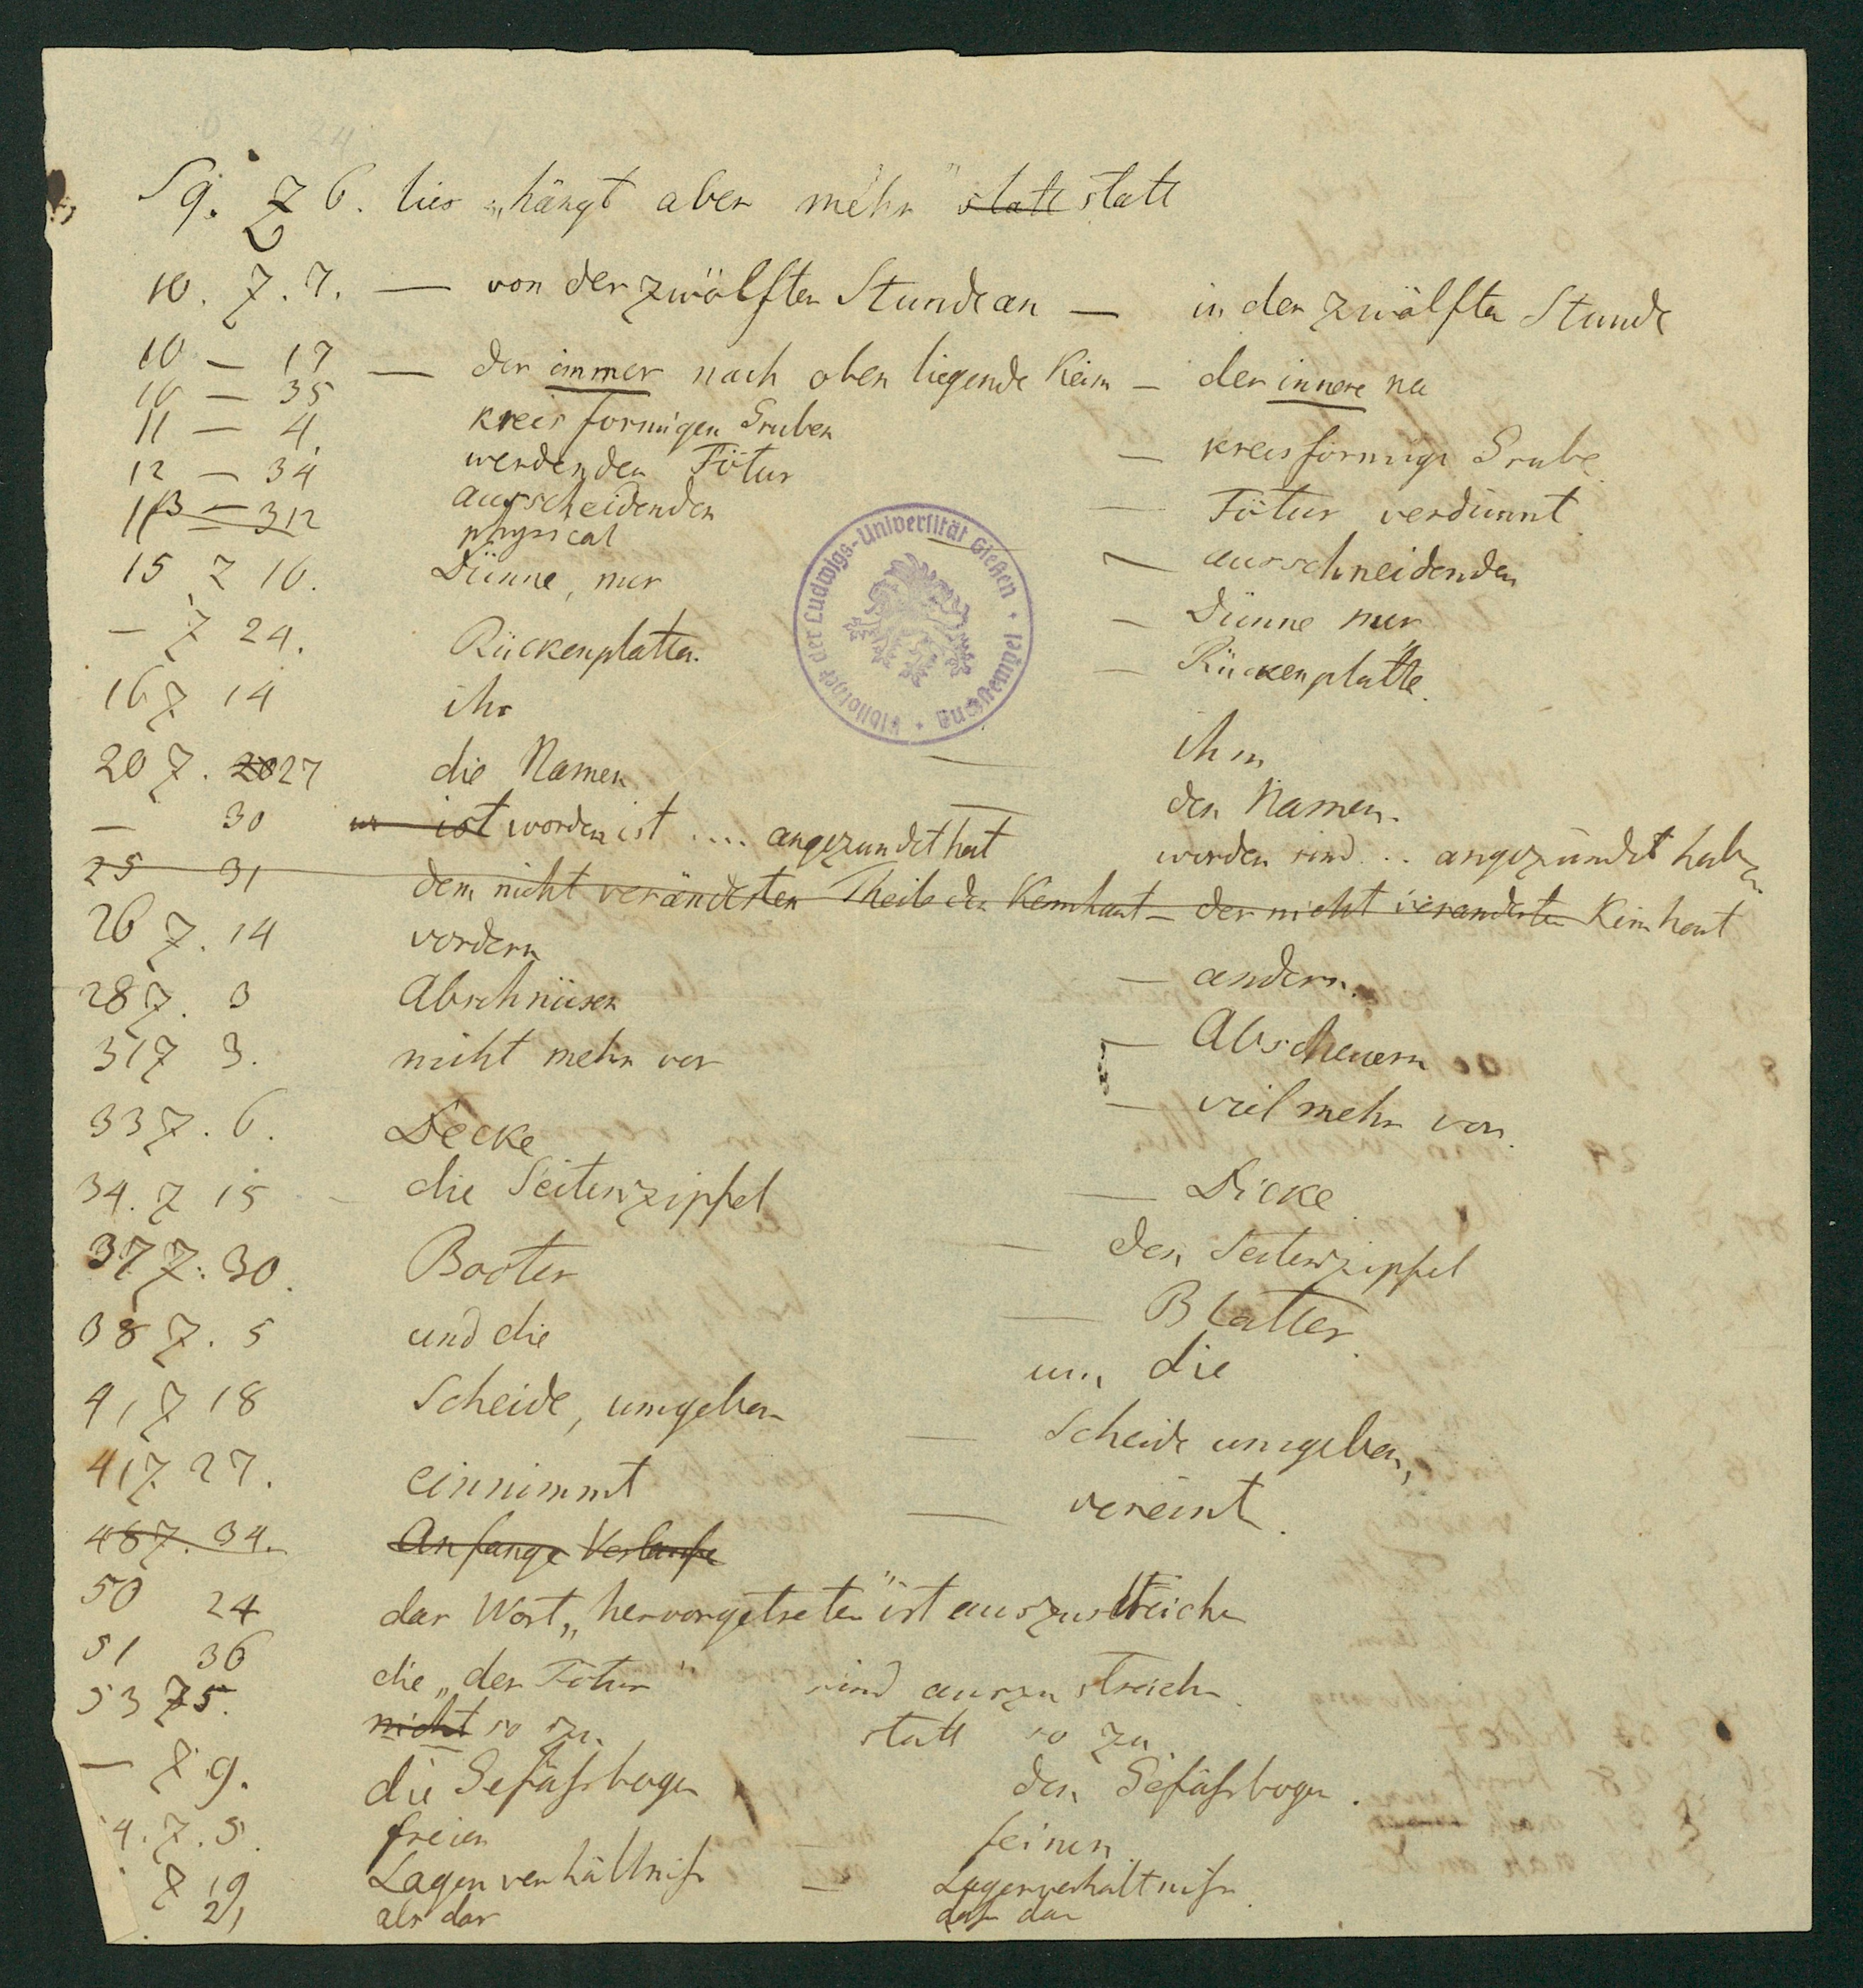 S 9. Z 6. lies „hängt aber mehr" statt statt
10. Z. 7. — von der zwölften Stunde an — in der zwölften Stunde
10 — 17 — der immer nach oben liegende Keim — der innere na
10 — 35 kreisformigen Gruben — kreisformige Grube
11 — 4. werdenden Fötus — Fötus verdünnt
12 — 34 ausscheidenden — ausschneidenden
13 — 312 physical
15 Z 16. Dünne, nur — Dünne nur
— Z 24. Rückenplatten. — Rückenplatte.
16 Z 14 ihr ihm
20 Z. 20 27 die Namen — den Namen.
— 30 ist worden ist .... angezundet hat — worden sind .. angezündet haben
25 31 dem nicht veränderten Theile der Keimhaut — der nicht veranderten Keimhaut
26 Z. 14 vordern — andern.
28 Z. 3 Abschnüren — Abscheuern
31 Z 3. nicht mehr vor — viel mehr von.
33 Z. 6. Decke — Dicke.
34. Z 15 die Seitenzipfel — den Seitenzipfel
37 Z. 30. Booter — Blatter.
38 Z. 5 und die um die
41 Z 18 Scheide, umgeben — Scheide umgeben,
41 Z 27. einnimmt — vereint.
48 Z. 34. Anfange Verlaufe
50 24 das Wort „hervorgetreten" ist auszustreichen
51 36 die „der Fötus" sind auszustreichen.
53 Z 5. nicht so zu. statt so zu
— Z 9. die Gefäßbogen den Gefäßbogen.
4. Z. 5. freien — feinen
Z 19 Lagenverhältniß — Lagerverhältniß.
21 als das daß das
Bibliothek der Ludwigs-Universität Gießen · Tauschstempel ·